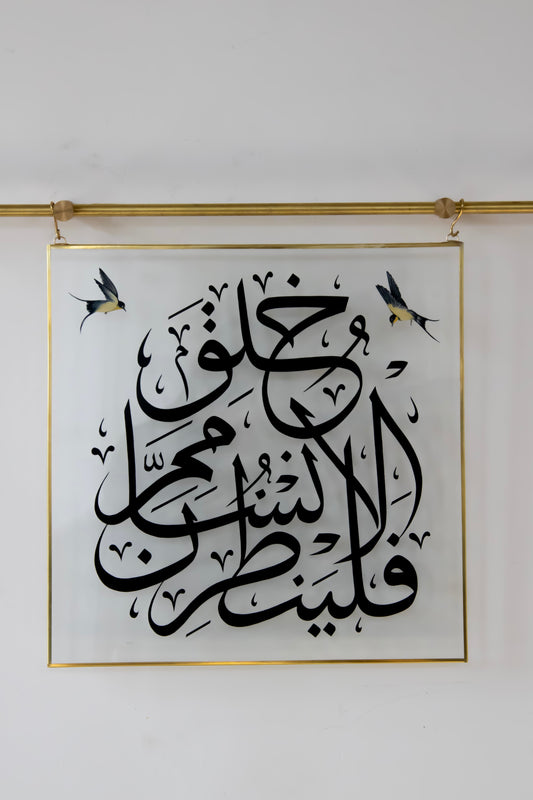 فَلْيَنظُرِ
الْإِنسَٰنُ مِمَّ
خُلِقَ